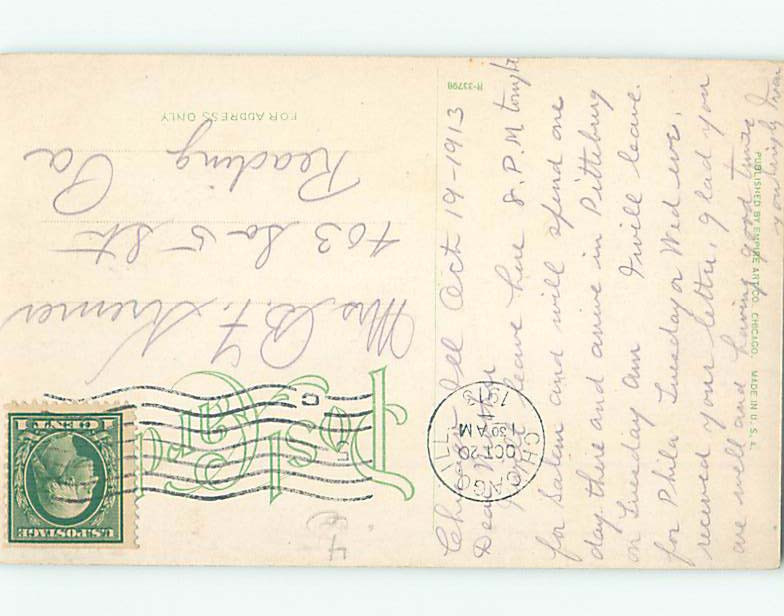 Chicago Ill Oct 19-1913
Dear
leave here 8. P. M tonight
for Salem and will spend one
day there and arrive in Pittsburg
on Tuesday am I will leave
for Phila Tuesday or Wed eve.
received your letter, glad you
are well and having good time
Post Card
FOR ADDRESS ONLY
Mrs B. F. Kremer
403 So 5 Str
Reading
Pa
CHICAGO, ILL.
OCT 20
1 30 AM
1913
C
U.S. POSTAGE
1 CENT 1
H-33798
PUBLISHED BY EMPIRE ART CO. CHICAGO. MADE IN U. S. A.